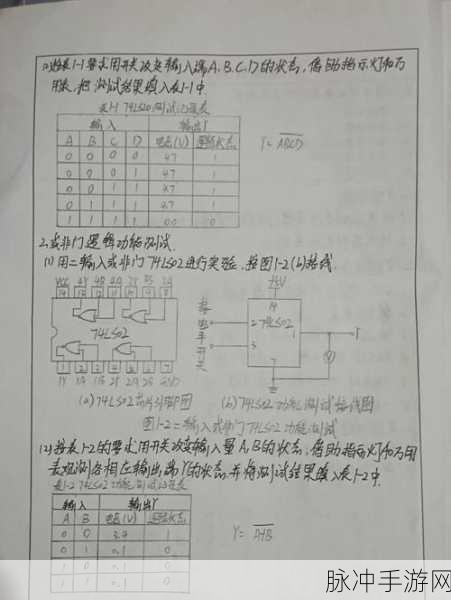 (2)按表1-1要求用开关改变输入端A、B、C、D的状态,借助指示灯和万
用表,把测试结果填入表1-1中.
表1-1 74LS20测试记录表
输入 输出Y
A B C D 电压(V) 逻辑状态
0 0 0 0 4.7 1
0 0 0 1 4.7 1
0 0 1 1 4.7 1
0 1 1 1 4.7 1
1 1 1 1 0.0 0
Y=ABCD
2.或非门逻辑功能测试.
(1)用二输入或非门74LS02进行实验,按图1-2(b)接线.
VCC 4Y 4B 4A 3Y 3B 3A
14 13 12 11 10 9 8
74LS02
1 2 3 4 5 6 7
1Y 1A 1B 2Y 2A 2B GND
+5V
14
接电平开关
2 74LS02 1
3
7
V
Y
(a)74LS02芯片引脚图 (b)74LS02功能测试接线图
图1-2 二输入或非门74LS02功能测试
(2)按表1-2的要求用开关改变输入量A,B的状态,借助指示灯和万用
表观测各相应输出端Y的状态,并将测试结果填入表1-2中.
表1-2 74LS02功能测试记录表
输入 输出Y
A B 电压(V) 逻辑状态
0 0 3.4 1
0 1 0.1 0
1 0 0.1 0
1 1 0.1 0
Y=A+B
脉冲手游网